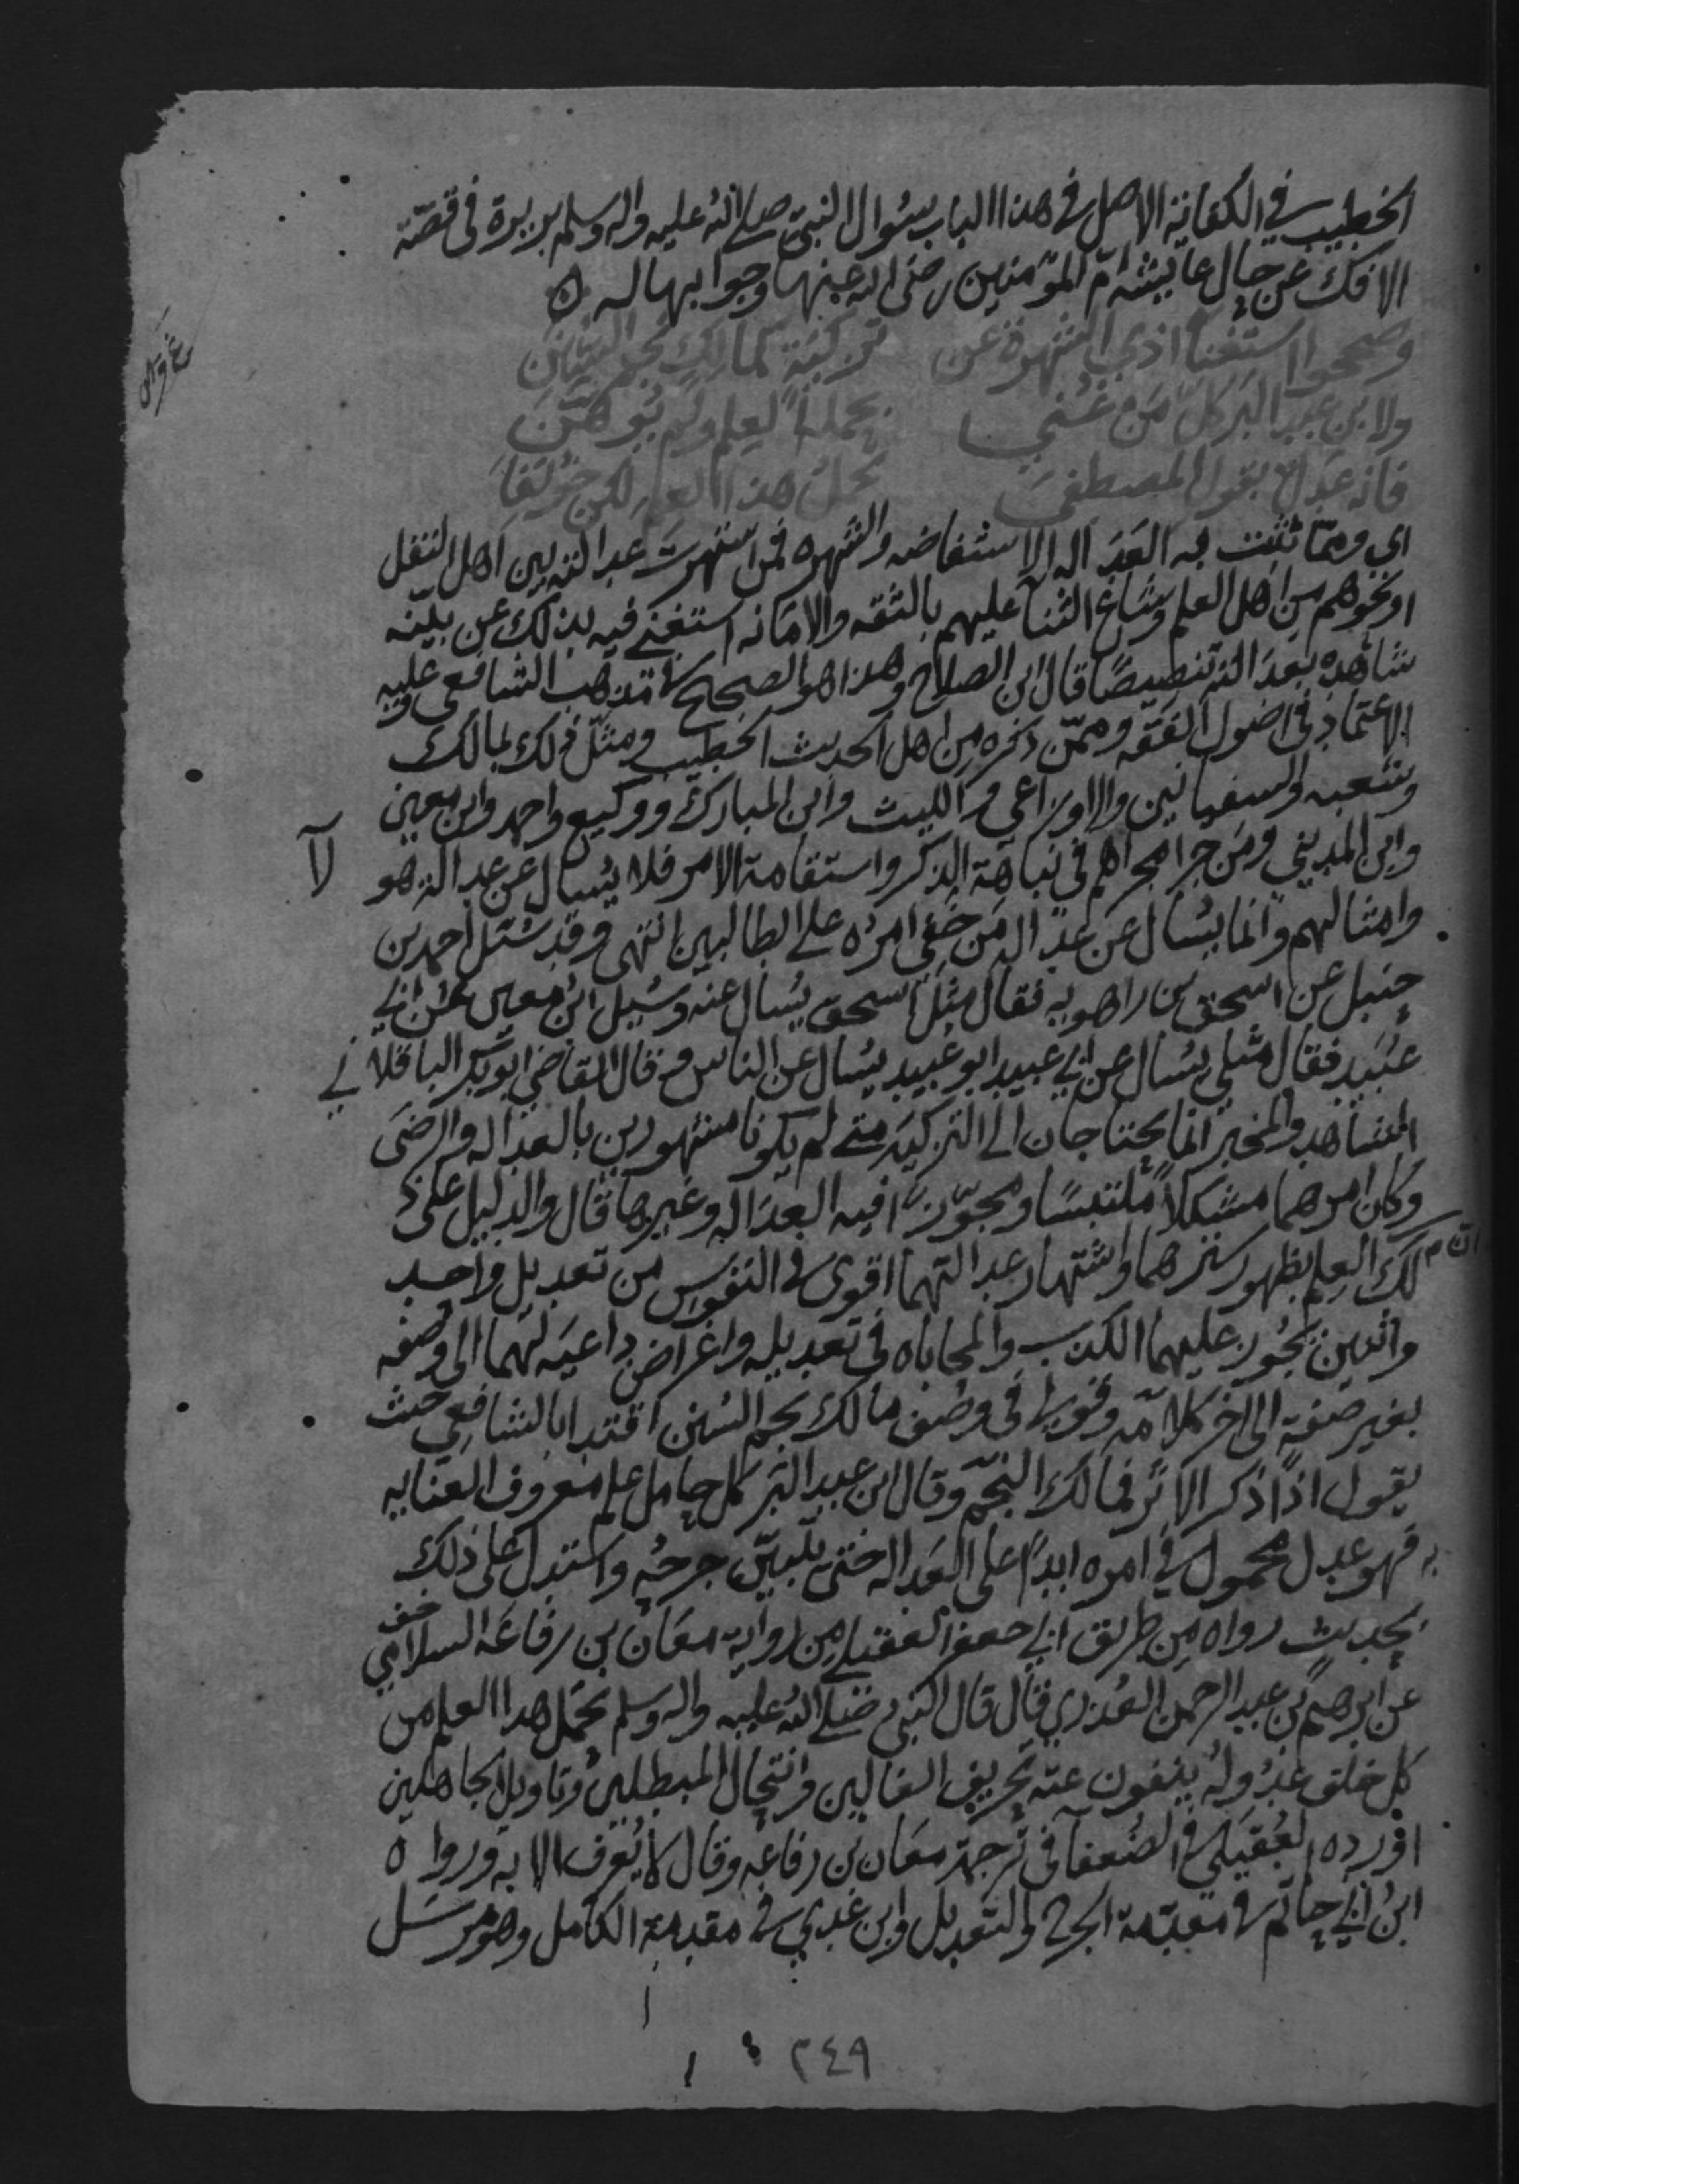 الخطيب في الكفاية الاصل في هذا الباب سؤال النبي صلى الله عليه واله وسلم بريرة في قصة
الافك عن حال عايشه ام المؤمنين رضى الله عنها وجوابها له ه
وصححوا استغناء ذي الشهرة عن تزكية كمالك نجم السنن
ولابن عبد البر كل من عني بحمله العلم ولم يوهن
فانه عدل بقول المصطفى يحمل هذا العلم لكن خولفا
اي ومما تثبت به العداله الاستفاضه والشهره فمن اشتهرت عدالته بين اهل النقل
او نحوهم من اهل العلم وشاع الثنا عليهم بالثقه والامانه استغنى فيه بذلك عن بينه
شاهده بعدالته تنصيصًا قال ابن الصلاح وهذا هو الصحيح في مذهب الشافعي وعليه
الاعتماد في اصول الفقه وممن ذكره من اهل الحديث الخطيب ومثل ذلك بمالك
وشعبه والسفيانين والاوزاعي والليث وابن المبارك ووكيع واحمد وابن معين
وابن المديني ومن جرا مجراهم في نباهة الذكر واستقامة الامر فلا يسال عن عدالة هو لآ
وامثالهم وانما يسال عن عدالة من خفي امره على الطالبين انتهى وقد سئل احمد بن
حنبل عن اسحق بن راهويه فقال مثل اسحق يسال عنه وسيل ابن معين عن ابي
عبيد فقال مثلي يسال عن ابي عبيد ابو عبيد يسال عن الناس وقال القاضي ابو بكر الباقلاني
الشاهد والمخبر انما يحتاجان الى التزكية متى لم يكونا مشهورين بالعداله والرضى
وكان امرهما مشكلاً ملتبسًا ومجوزًا فيه العداله وغيرها قال والدليل على ذ
لك ان العلم بظهور سترهما واشتهار عدالتهما اقوى في النفوس من تعديل واحد
واثنين يجوز عليهما الكذب والمحاباه في تعديله واغراض داعيه لهما الى وصفه
بغير صفته الى اخر كلامه وقولي في وصف مالك نجم السنن اقتدا بالشافعي حيث
يقول اذا ذكر الاثر فمالك النجم وقال ابن عبد البر كل حامل علم معروف العنايه
به فهو عدل محمول في امره ابدًا على العداله حتى يتبين جرحه واستدل على ذلك
بحديث رواه من طريق ابي جعفر العقيلي من رواية معان بن رفاعه السلامي خف
عن ابرهيم بن عبد الرحمن العذري قال قال النبي صلى الله عليه واله وسلم يحمل هذا العلم من
كل خلق عدوله ينفون عنه تحريف الغالين وانتحال المبطلين وتاويل الجاهلين
اورده العقيلي في الضعفا في ترجمة معان بن رفاعه وقال لا يعرف الا به ورواه
ابن ابي حاتم في مقدمة الجرح والتعديل وابن عدي في مقدمة الكامل وهو مرسل
٢٤٩